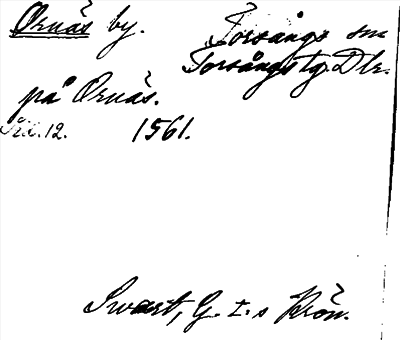 Ornäs by. Torsångs sn
Torsångs tg. Dlr.
på Ornäs.
Sid. 12. 1561.
Swart, G. I:s Krön.